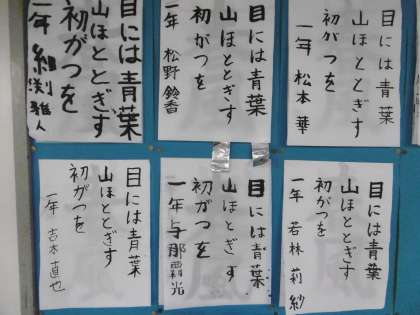 目には青葉
山ほととぎす
初がつを
一年 松本 華
目には青葉
山ほととぎす
初がつを
一年 松野 鈴香
目には青葉
山ほととぎす
初がつを
一年
目には青葉
山ほととぎす
初がつを
一年 若林 莉紗
目には青葉
山ほととぎす
初がつを
一年 与那覇 光
目には青葉
山ほととぎす
初がつを
一年 吉本 直也